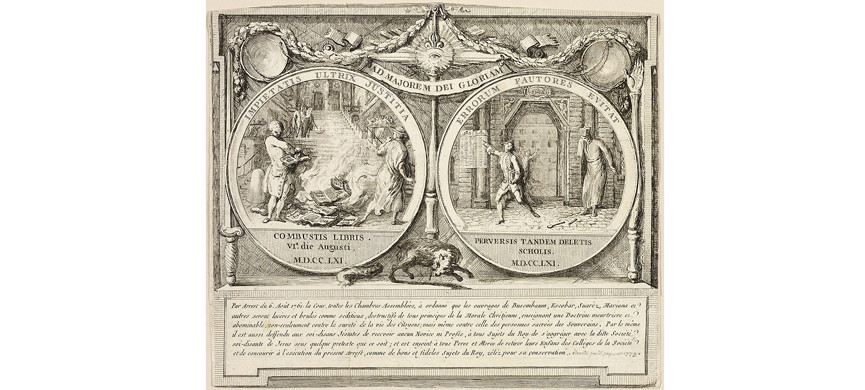 AD MAJOREM DEI GLORIAM
IMPIETATIS ULTRIX JUSTITIA
COMBUSTIS LIBRIS.
VI.ª die Augusti.
M.D.CC.LXI.
ERRORUM FAUTORES EVITAT
PERVERSIS TANDEM DELETIS
SCHOLIS.
M.D.CC.LXI.
Par Arrest du 6. Août 1761. la Cour, toutes les Chambres Assemblées, a ordonné que les ouvrages de Busenbaum, Escobar, Suaréz, Mariana et
autres seront lacérés et brulés comme séditieux, destructifs de tous principes de la Morale Chrétienne, enseignant une Doctrine meurtriere et
abominable, non seulement contre la sureté de la vie des Citoyens, mais même contre celle des personnes sacrées des Souverains. Par le même
il est aussi deffendu aux soi-disans Jesuites de recevoir aucun Novice ni Profès, à tous Sujets du Roy de s'aggréger avec la dite Societé
soi-disante de Jesus sous quelque pretexte que ce soit; et est enjoint à tous Peres et Meres de retirer leurs Enfans des Colleges de la Societé
et de concourir à l'exécution du present Arrest, comme de bons et fideles Sujets du Roy, zélés pour sa conservation.